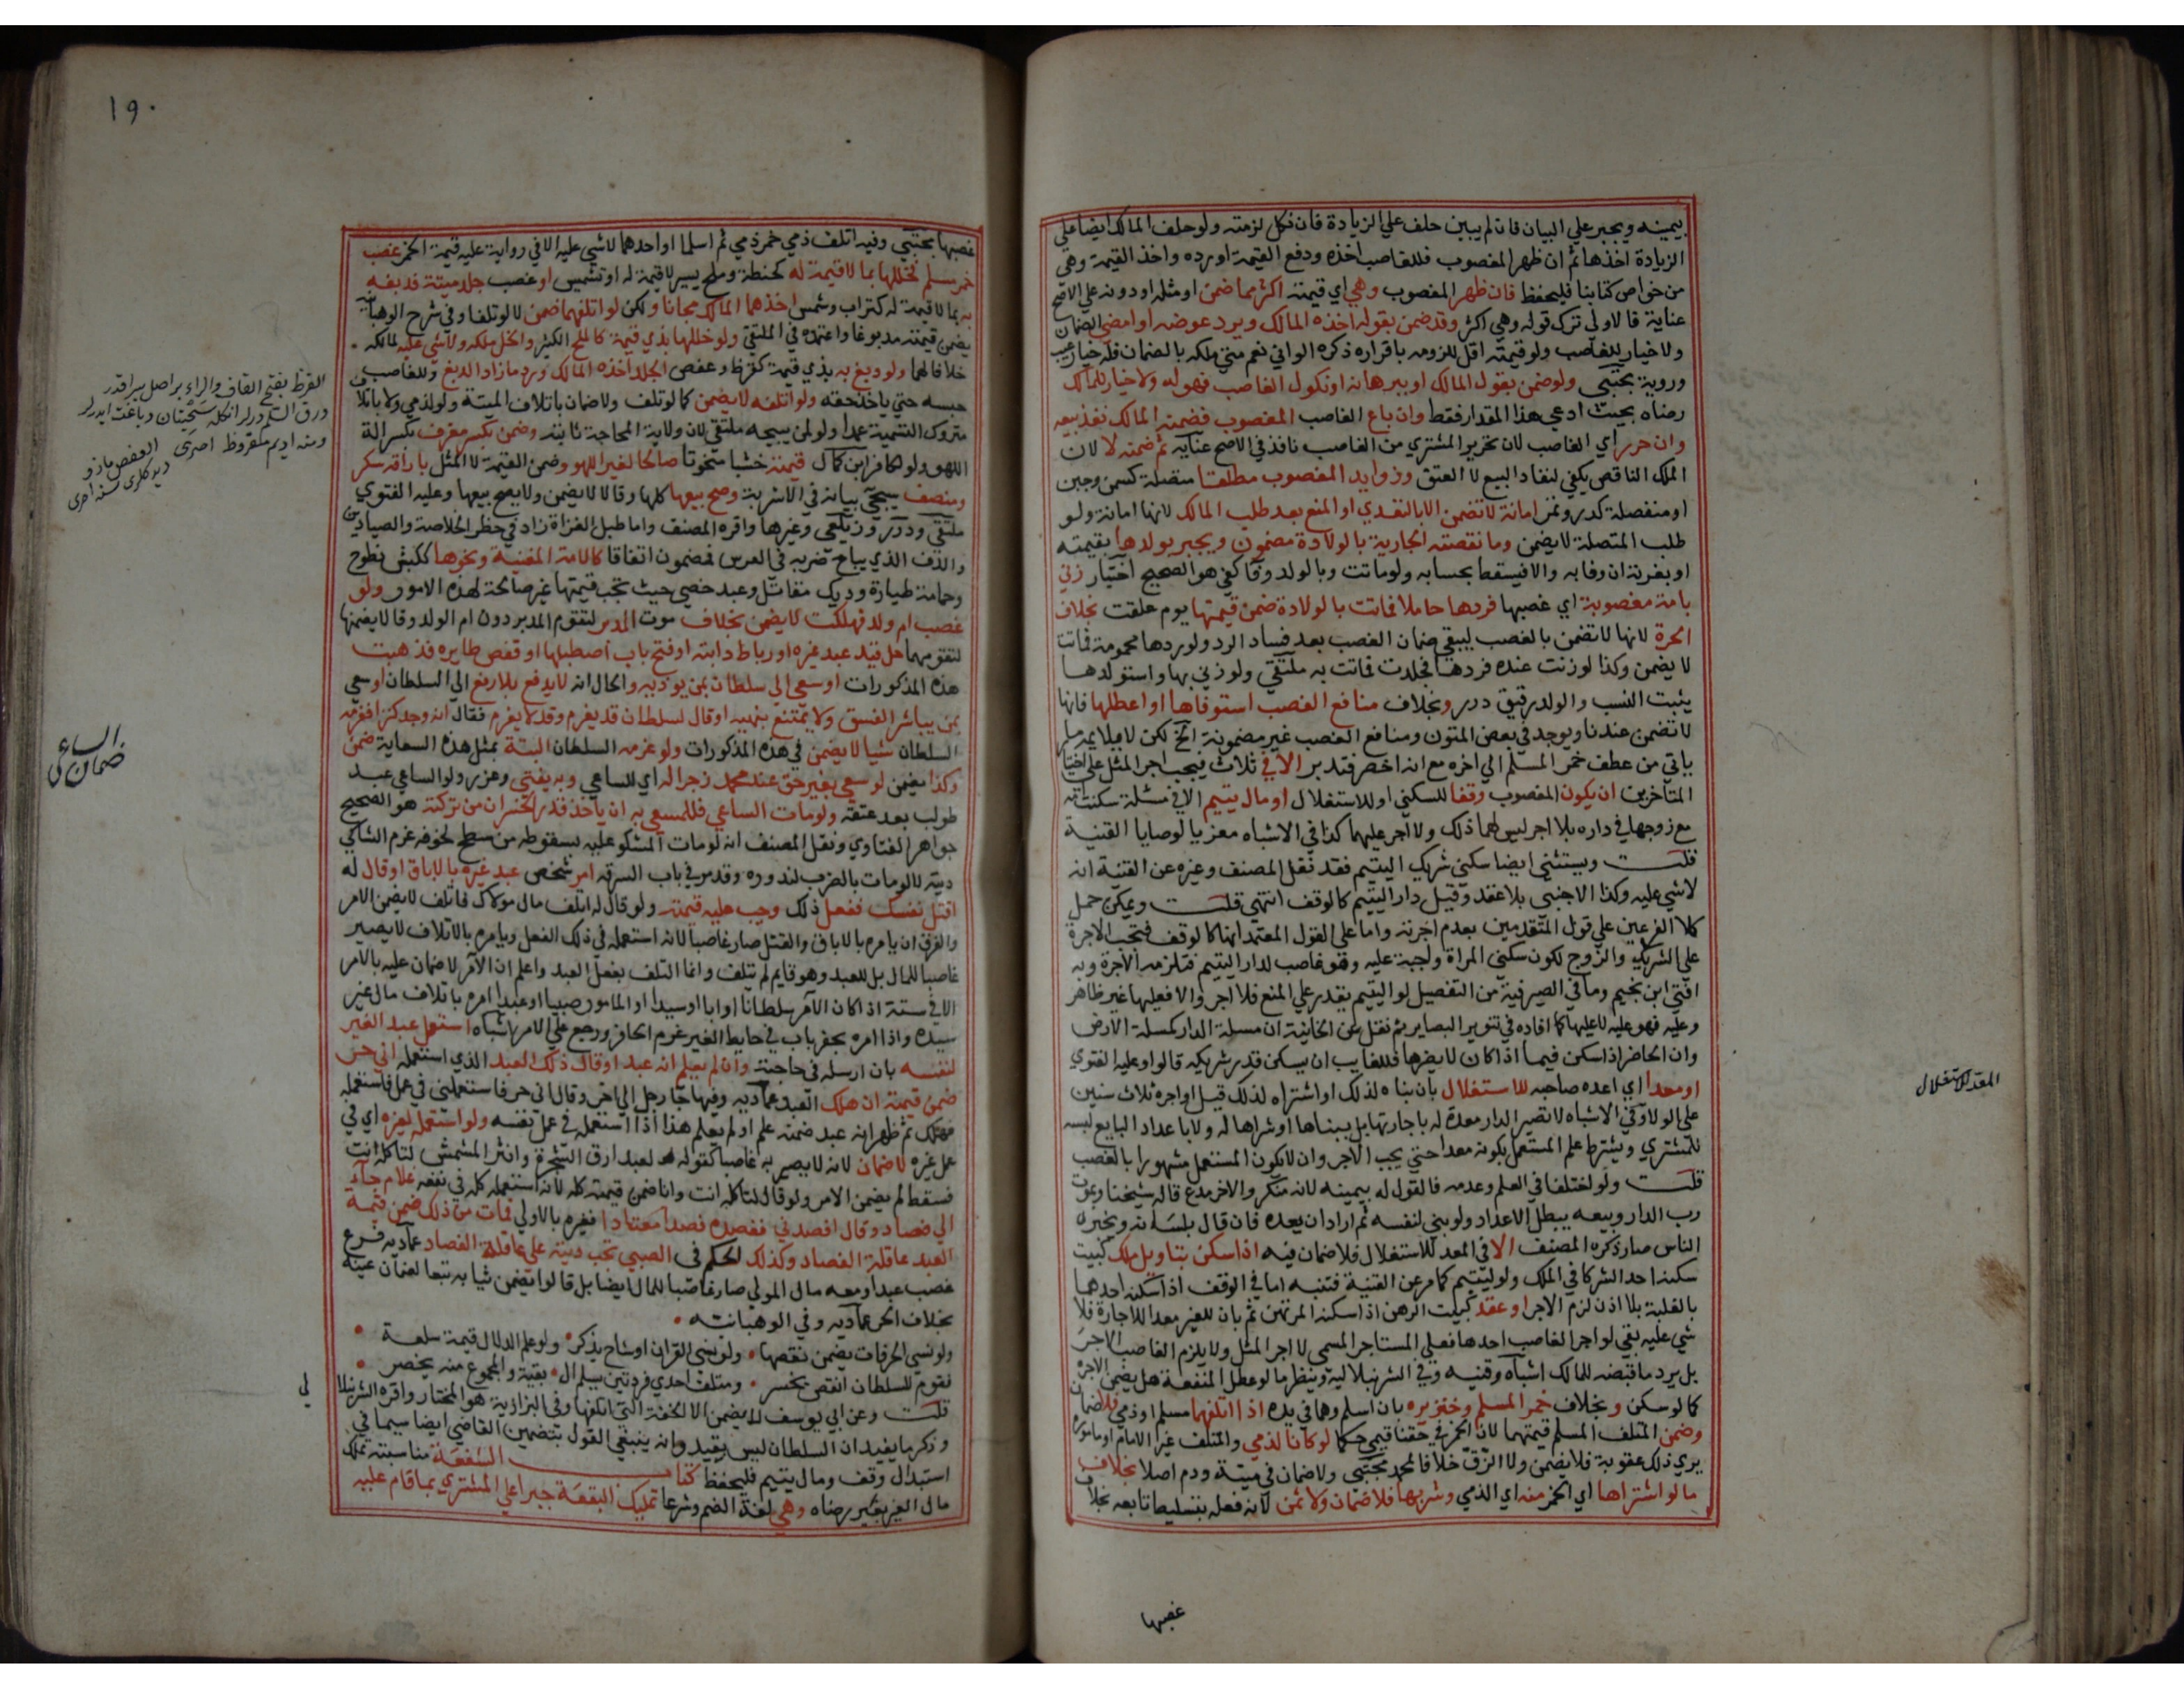 بيمينه ويجبر علي البيان فان لم يبين حلف علي الزيادة فان نكل لزمته ولو حلف المالك ايضا علي
الزيادة اخذها ثم ان ظهر المغصوب فللغاصب اخذه ودفع القيمة او رده واخذ القيمة وهي
من خواص كتابنا فليحفظ فان ظهر المغصوب وهي اي قيمته اكثر مما ضمن او مثله او دونه علي الاصح
عناية فالاولي ترك قوله وهي اكثر وقد ضمن بقوله اخذه المالك ويرد عوضه او امضي الضمان
ولا خيار للغاصب ولو قيمته اقل للزومه باقراره ذكره الواني نعم متي ملكه بالضمان فله خيار عيب
وروية مجتبي ولو ضمن بقول المالك او ببرهانه او نكول الغاصب فهو له ولا خيار للمالك
رضاه بحيث ادعي هذا المقدار فقط وان باع الغاصب المغصوب فضمنه المالك نفذ بيعه
وان حرر اي الغاصب لان تحرير المشتري من الغاصب نافذ في الاصح عناية ثم ضمنه لا لان
الملك الناقص يكفي لنفاد البيع لا العتق وزوايد المغصوب مطلقا متصلة كسمن وحسن
او منفصلة كدر وثمر امانة لا تضمن الا بالتعدي او المنع بعد طلب المالك لانها امانة ولو
طلب المتصلة لا يضمن وما نقصته الجارية بالولادة مضمون ويجبر بولدها بقيمته
او بغرته ان وفا به والا فيسقط بحسابه ولو ماتت وبالولد وفا كفي هو الصحيح اختيار زني
بامة مغصوبة اي غصبها فردها حاملا فماتت بالولادة ضمن قيمتها يوم علقت بخلاف
الحرة لانها لا تضمن بالغصب ليبقي ضمان الغصب بعد فساد الرد ولو ردها محمومة فماتت
لا يضمن وكذا لو زنت عنده فردها فجلدت فماتت به ملتقي ولو زني بها واستولدها
يثبت النسب والولد رقيق درر وبخلاف منافع الغصب استوفاها او اعطلها فانها
لا تضمن عندنا ويوجد في بعض المتون ومنافع الغصب غير مضمونة الخ لكن لا يلايمه ما
ياتي من عطف خمر المسلم الي اخره مع انه اخصر فتدبر الا في ثلاث فيجب اجر المثل علي اختيار
المتاخرين ان يكون المغصوب وقفا للسكني او للاستغلال او مال يتيم الا في مسئلة سكنت امه
مع زوجها في داره بلا اجر ليس لهما ذلك ولا اجر عليهما كذا في الاشباه معزيا لوصايا القنية
قلت ويستثني ايضا سكني شريك اليتيم فقد نقل المصنف وغيره عن القنية انه
لا شي عليه وكذا الاجنبي بلا عقد وقيل دار اليتيم كالوقف انتهي قلت ويمكن حمل
كلا الفرعين علي قول المتقدمين بعدم اجرته واما علي القول المعتمد انها كالوقف فتجب الاجرة
علي الشريك والزوج لكون سكني المراة واجبة عليه وهو غاصب لدار اليتيم فتلزمه الاجرة وبه
افتي ابن نجيم وما في الصيرفية من التفصيل لو اليتيم يقدر علي المنع فلا اجر والا فعليها غير ظاهر
وعليه فهو عليه لا عليها كما افاده في تنوير البصاير ثم نقل عن الخانية ان مسلة الدار كمسلة الارض
وان الحاضر اذا سكن فيما اذا كان لا يضرها فللغايب ان يسكن قدر شريكه قالوا وعليه الفتوي
او معدا اي اعده صاحبه للاستغلال بان بناه لذلك او اشتراه لذلك قيل او اجره ثلاث سنين
علي الولا وفي الاشباه لا تصير الدار معدة له باجارتها بل ببناها او شراها له ولا باعداد البايع لنسبه
للمشتري ويشترط علم المستعمل بكونه معدا حتي يجب الاجر وان لا يكون المستعمل مشهورا بالغصب
قلت ولو اختلفا في العلم وعدمه فالقول له بيمينه لانه منكر والاخر مدع قاله شيخنا وبموت
رب الدار وبيعه يبطل الاعداد ولو بني لنفسه ثم اراد ان يعده فان قال بلسانه ويخبر
الناس صار ذكره المصنف الا في المعد للاستغلال فلا ضمان فيه اذا سكن بتاويل ملك كبيت
سكنه احد الشركا في الملك ولو ليتيم كما مر عن القنية فتنبه اما في الوقف اذا سكنه احدهما
بالغلبة بلا اذن لزم الاجر او عقد كبيت الرهن اذا سكنه المرتهن ثم بان للغير معدا للاجارة فلا
شي عليه بقي لو اجر الغاصب احدها فعلي المستاجر المسمي لا اجر المثل ولا يلزم الغاصب الاجر
بل يرد ما قبضه للمالك اشباه وقنيه وفي الشرنبلالية وينظر ما لو عطل المنفعة هل يضمن الاجرة
كما لو سكن وبخلاف خمر المسلم وخنزيره بان اسلم وهما في يده اذا اتلفهما مسلم او ذمي فلا ضمان
وضمن المتلف المسلم قيمتهما لان الخمر في حقنا قيمي حكما لو كانا لذمي والمتلف غير الامام او ماموره
يري ذلك عقوبة فلا يضمن ولا الزق خلافا لمحمد مجتبي ولا ضمان في ميتة ودم اصلا بخلاف
ما لو اشتراها اي الخمر منه اي الذمي وشربها فلا ضمان ولا ثمن لانه فعله بتسليط بايعه بخلاف
غصبها
المعد للاستغلال
١٩٠
غصبها مجتبي وفيه اتلف ذمي خمر ذمي ثم اسلما او احدهما لا شي عليه الا في رواية عليه قيمة الخمر غصب
خمر مسلم فخللها بما لا قيمة له كحنطة وملح يسير لا قيمة له او تشميس او غصب جلد ميتة فدبغه
به بما لا قيمة له كتراب وشمس اخذهما المالك مجانا ولكن لو اتلفهما ضمن لا لو تلفا وفي شرح الوهبانية
يضمن قيمته مدبوغا واعتمده في الملتقي ولو خللها بذي قيمة كالملح الكثير والخل ملكه ولا شي عليه لمالكه
خلافا لهما ولو دبغ به بذي قيمة كقرظ وعفص الجلد اخذه المالك ورد ما زاد الدبغ وللغاصب
حبسه حتي ياخذ حقه ولو اتلفه لا يضمن كما لو تلف ولا ضمان باتلاف الميتة ولو لذمي ولا باتلاف
متروك التسمية عمدا ولو لمن يبيحه ملتقي لان ولاية المحاجة ثابتة وضمن بكسر معزف بكسر الة
اللهو ولو لكافر ابن كمال قيمته خشبا منحوتا صالحا لغير اللهو وضمن القيمة لا المثل باراقة سكر
ومنصف سيجي بيانه في الاشربة وصح بيعها كلها وقالا لا يضمن ولا يصح بيعها وعليه الفتوي
ملتقي ودرر وزيلعي وغيرها واقره المصنف واما طبل الغزاة زاد في حظر الخلاصة والصيادين
والدف الذي يباح ضربه في العرس فمضمون اتفاقا كالامة المغنية ونحوها ككبش نطوح
وحمامة طيارة وديك مقاتل وعبد خصي حيث تجب قيمتها غير صالحة لهذه الامور ولو
غصب ام ولد فهلكت لا يضمن بخلاف موت المدبر لتقوم المدبر دون ام الولد وقالا يضمنها
لتقومهما حل قيد عبد غيره او رباط دابته او فتح باب اصطبلها او قفص طايره فذهبت
هذه المذكورات او سعي الي سلطان بمن يوذيه والحال انه لا يدفع بلا رفع الي السلطان او سعي
بمن يباشر الفسق ولا يمتنع بنهيه او قال لسلطان قد يغرم وقد لا يغرم فقال انه وجد كنزا فغرمه
السلطان شيا لا يضمن في هذه المذكورات ولو غرمه السلطان البتة بمثل هذه السعاية ضمن
وكذا يضمن لو سعي بغير حق عند محمد زجرا له اي للساعي وبه يفتي وعزر ولو الساعي عبد
طولب بعد عتقه ولو مات الساعي فللمسعي به ان ياخذ قدر الخسران من تركته هو الصحيح
جواهر الفتاوي ونقل المصنف انه لو مات المشكو عليه بسقوطه من سطح لخوفه غرم الشاكي
ديته لا لو مات بالضرب لندوره وقد مر في باب السرقه امر شخص عبد غيره بالاباق او قال له
اقتل نفسك ففعل ذلك وجب عليه قيمته ولو قال له اتلف مال مولاك فاتلف لا يضمن الامر
والفرق ان يامره بالاباق والقتل صار غاصبا لانه استعمله في ذلك الفعل ويامره بالاتلاف لا يصير
غاصبا للمال بل للعبد وهو قايم لم يتلف وانما التلف بفعل العبد واعلم ان الآمر لا ضمان عليه بالامر
الا في ستة اذا كان الآمر سلطانا او ابا او سيدا او المامور صبيا او عبدا امره باتلاف مال غير
سيده واذا امره بحفر باب في حايط الغير غرم الحافر ورجع علي الامر اشباه استعمل عبد الغير
لنفسه بان ارسله في حاجته وان لم يعلم انه عبد او قال ذلك العبد الذي استعمله اني حر
ضمن قيمته ان هلك العبد عماديه وفيها جا رجل الي اخر وقال اني حر فاستعملني في عمل فاستعمله
فهلك ثم ظهر انه عبد ضمنه علم او لم يعلم هذا اذا استعمله في عمل نفسه ولو استعمله لغيره اي في
عمل غيره لا ضمان لانه لا يصير به غاصبا كقوله لعبد ارق الشجرة وانثر المشمش لتاكله انت
فسقط لم يضمن الامر ولو قال لتاكله انت وانا ضمن قيمته كله لانه استعمله كله في نفعه غلام جاء
الي فصاد وقال افصدني ففصده فصدا معتادا فغيره بالاولي فمات من ذلك ضمن قيمة
العبد عاقلة الفصاد وكذلك الحكم في الصبي تجب ديته علي عاقلة الفصاد عماديه فرع
غصب عبدا ومعه مال المولي صار غاصبا للمال ايضا بل قالوا يضمن ثيابه تبعا لضمان عينه
بخلاف الحر عماديه وفي الوهبانيه
ولو نسي الحرفات يضمن نقصها ولو نسي القران او شاخ يذكر ولو علم الدلال قيمة سلعة
فقوم للسلطان انقص يخسر ومتلف احدي فردتين يسلم ال بقية والمجموع منه يحضر
قلت وعن ابي يوسف لا يضمن الا الخفة التي اتلفها وفي البزازية هو المختار واقره الشرنبلا لي
وذكر ما يفيد ان السلطان ليس بقيد وانه ينبغي القول بتضمين القاضي ايضا سيما في
استبدال وقف ومال يتيم فليحفظ كتاب الشفعة مناسبته تملك
مال الغير بغير رضاه وهي لغة الضم وشرعا تمليك البقعة جبرا علي المشتري بما قام عليه
القرظ بفتح القاف والراء بر اصل
ورق السلم درلر انكله سختيان دباغت ايدرلر
ومنه اديم مقروظ اخترى العفص مازو
ضمان الساعي